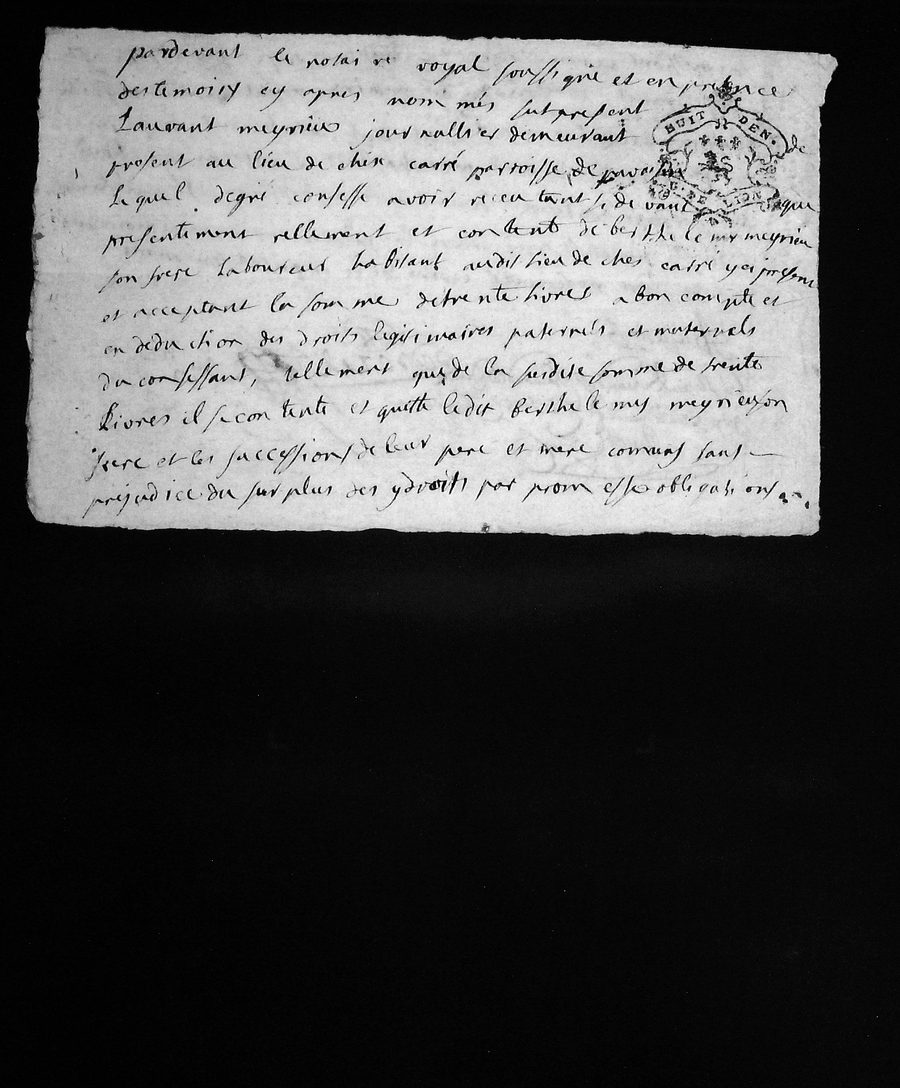 pardevant le notaire royal soussigné et en presence
des temoins cy apres nommés fut present
Laurant meyrieu journallier demeurant de
present au lieu de ches carré parroisse de pavaisin
Lequel de gré confesse avoir receu tant cy devant que
presentement reellement et contant de berthelemy meyrieu
son frere Laboureur habitant audit lieu de ches carré y ci present
et acceptant la somme de trente livres a bon compte et
en deduction des droits legitimaires paternels et maternels
du confessant, tellement que de la susdite somme de trente
Livres il se contente et quitte ledit berthelemy meyrieu son
frere et les successions de leur pere et mere comuns sans
prejudice du surplus des ydroits par promesse obligations
HUIT DEN.
G. DE LION